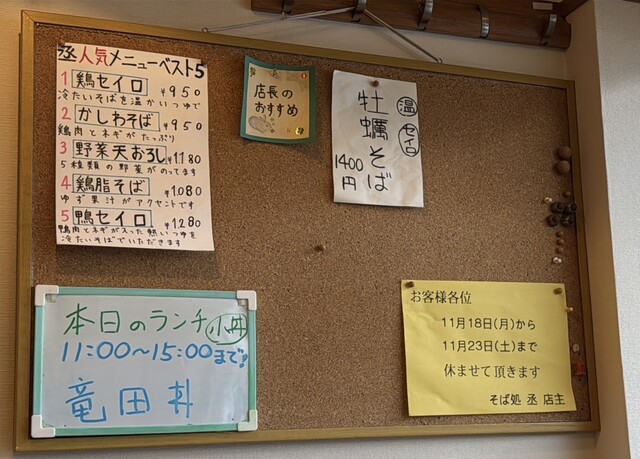 丞人気メニューベスト5
1 鶏セイロ ¥950
冷たいそばを温かいつゆで
2 かしわそば ¥950
鶏肉とネギがたっぷり
3 野菜天おろし ¥1180
5種類の野菜がのってます
4 鶏脂そば ¥1080
ゆず果汁がアクセントです
5 鴨セイロ ¥1280
鴨肉とネギが入った熱いつゆを
冷たいそばでいただきます
店長の
おすすめ
温 セイロ
牡蠣そば
1400円
本日のランチ 小丼
11:00~15:00まで!
竜田丼
お客様各位
11月18日(月)から
11月23日(土)まで
休ませて頂きます
そば処 丞 店主